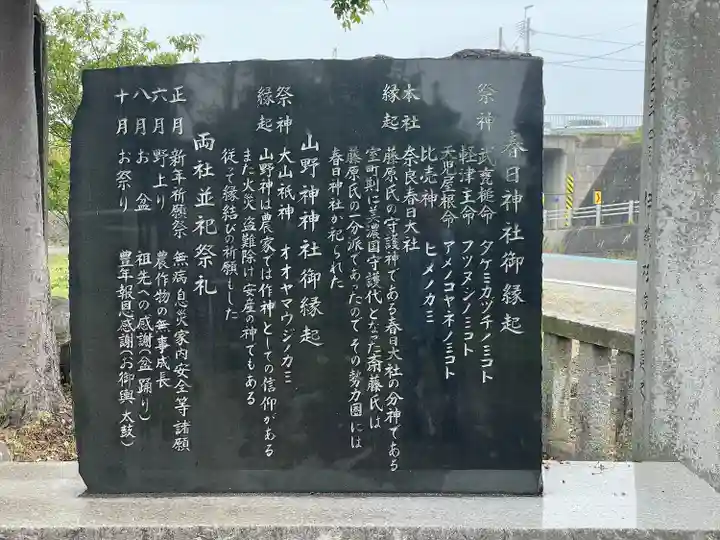 春日神社御縁起
祭神 武甕槌命 タケミカツチノミコト
軽津主命 フツヌシノミコト
天児屋根命 アメノコヤネノミコト
比売神 ヒメノカミ
本社 奈良春日大社
縁起 藤原氏の守護神である春日大社の分神である
室町期に美濃国守護代となった斎藤氏は
藤原氏の一分派であったので その勢力圏には
春日神社が祀られた
山野神神社御縁起
祭神 大山祇神 オオヤマウジノカミ
縁起 山野神は農家では作神としての信仰がある
また火災 盗難除け 安産の神でもある
従って縁結びの祈願もした
両社並祀祭礼
正月 新年祈願祭 無病息災家内安全等諸願
六月 野上り 農作物の無事成長
八月 お盆 祖先への感謝(盆踊り)
十月 お祭り 豊年報恩感謝(お御輿 太鼓)